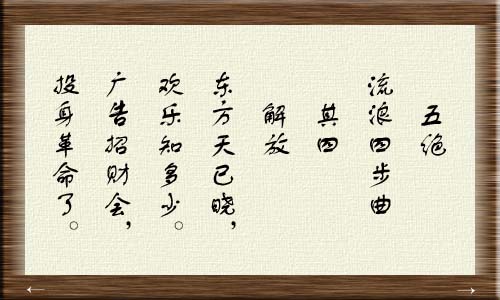 五绝
流浪四步曲
其四
解放
东方天已晓，
欢乐知多少。
广告招财会，
投身革命了。